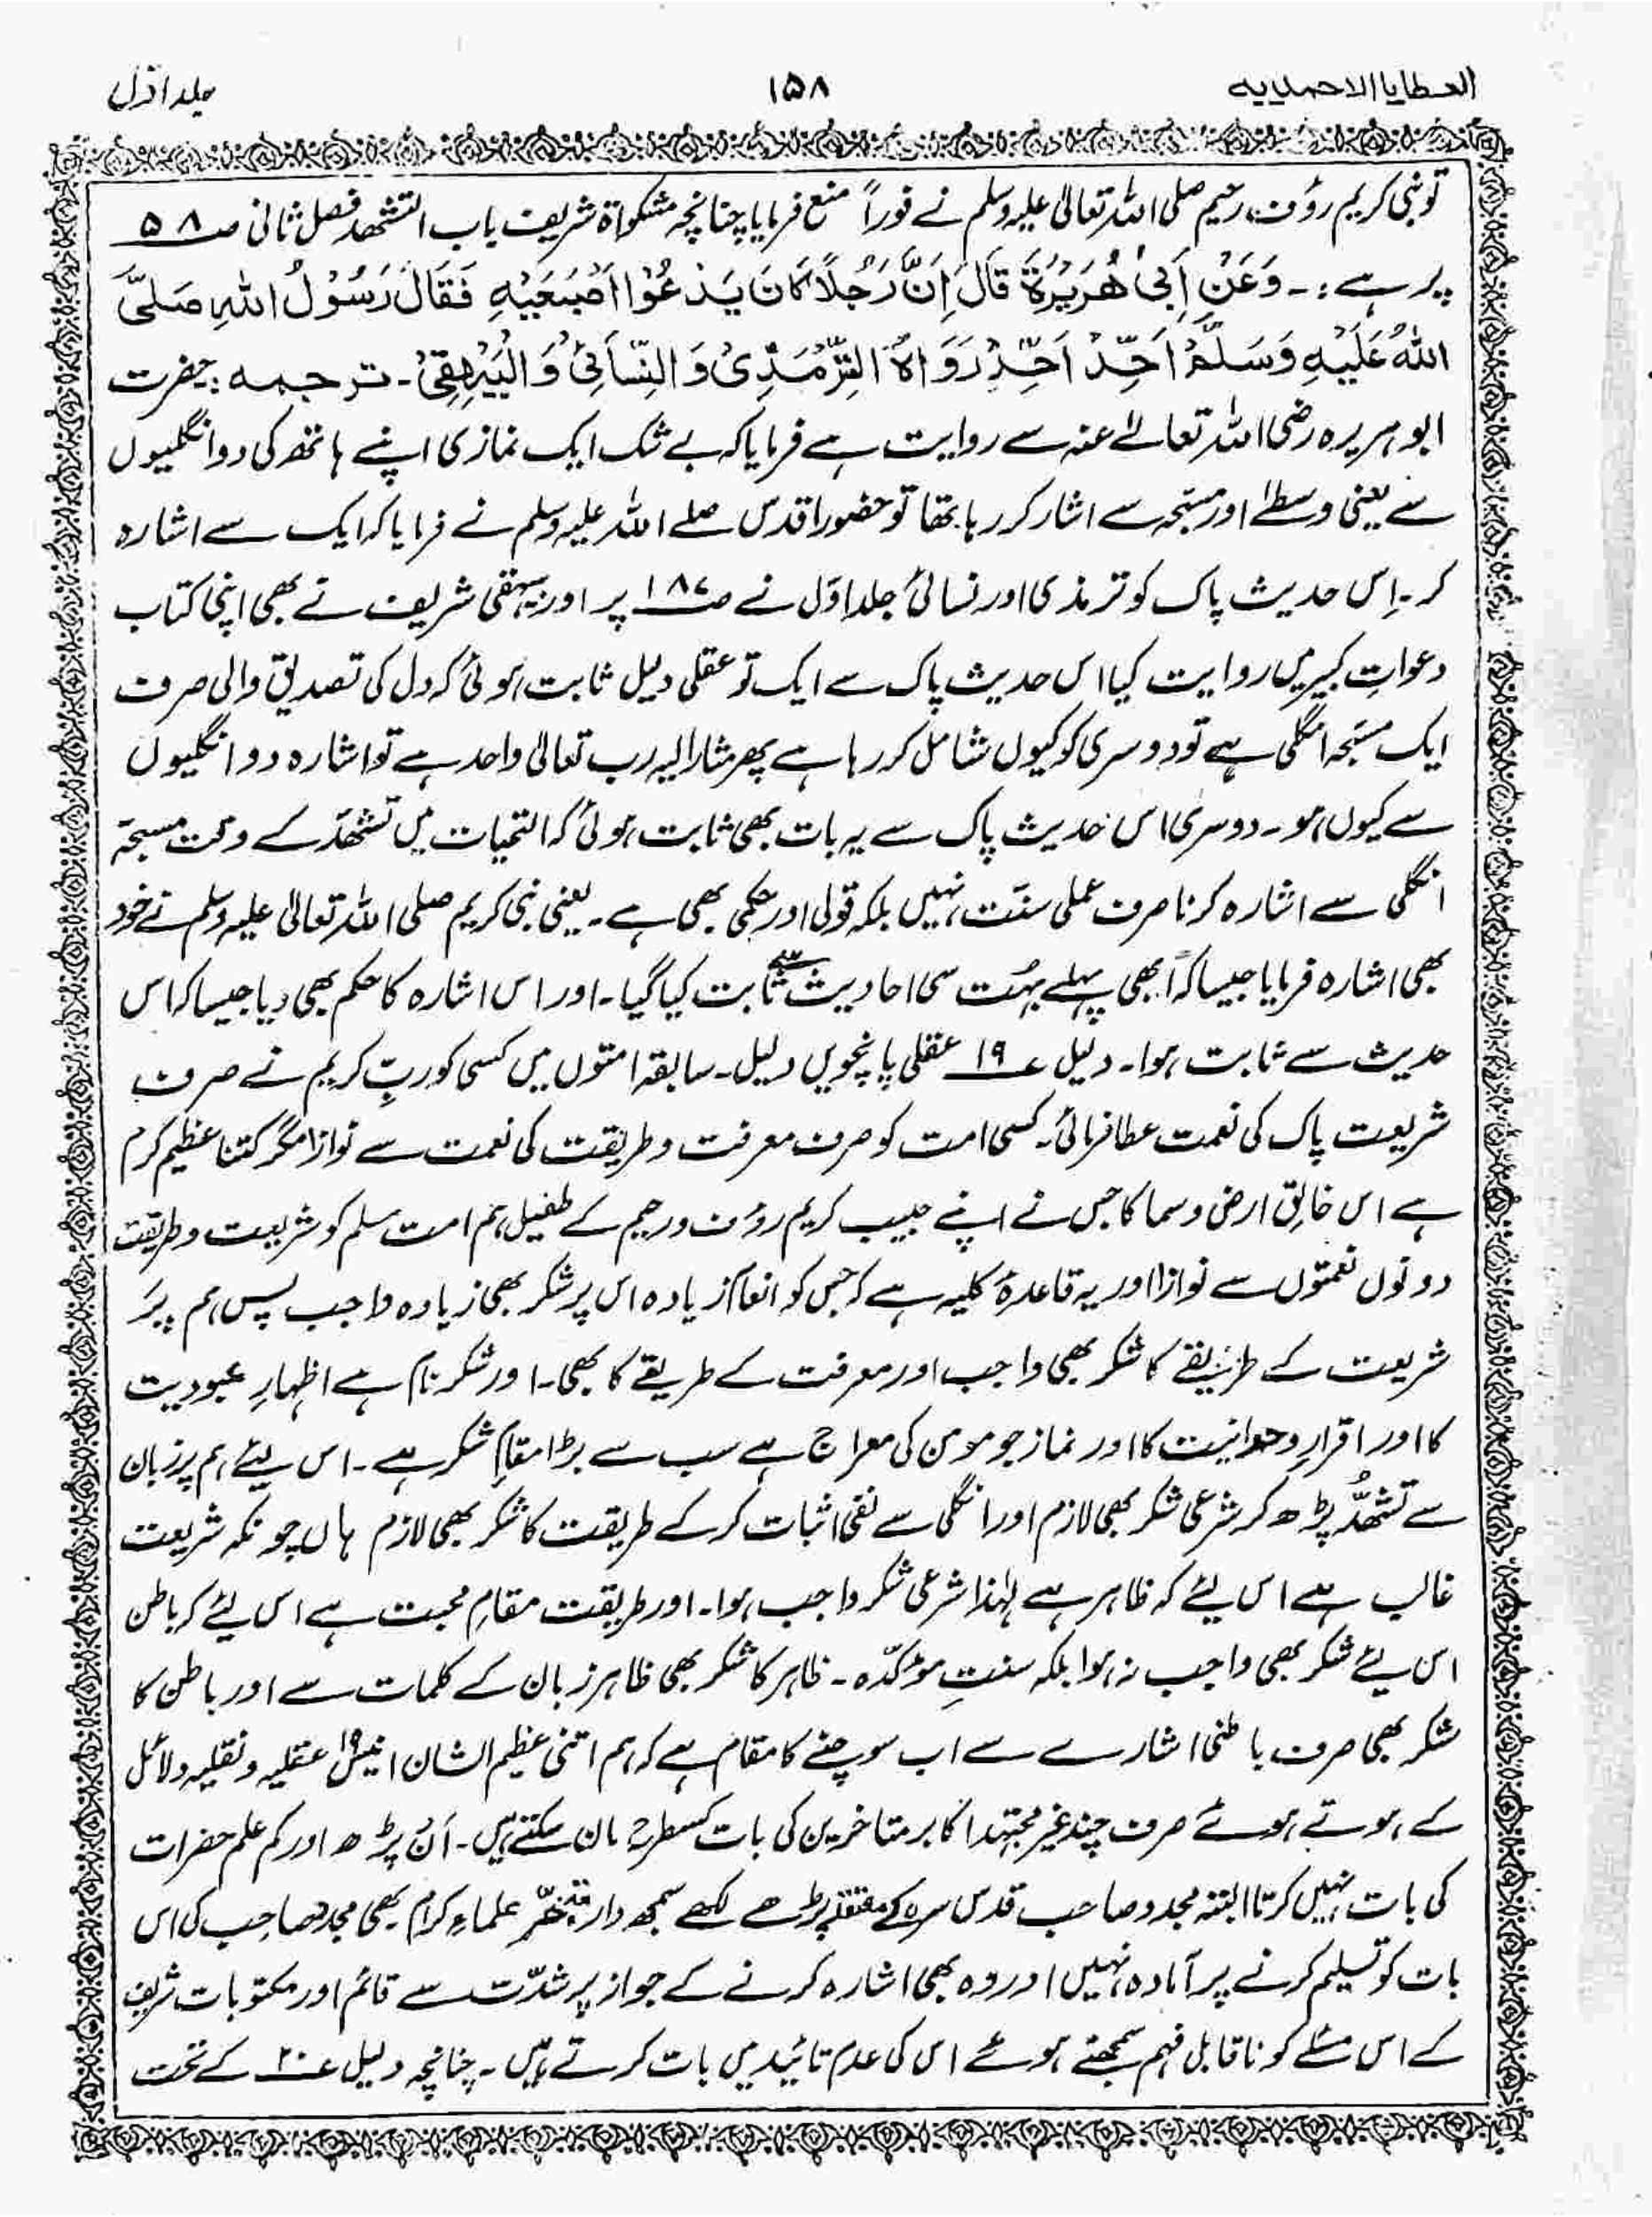 العطایا الاحمدیه
۱۵۸
جلد اوّل
تو نبی کریم رؤف رحیم صلی اللہ تعالیٰ علیہ وسلم نے فوراً منع فرمایا چنانچہ مشکواۃ شریف باب التشھد فصل ثانی صـ ۸۵
پر ہے :۔ وَعَنْ اَبِیْ هُرَيْرَةَ قَالَ اِنَّ رَجُلًا كَانَ يَدْعُوْا اَصْبَعَيْهِ فَقَالَ رَسُوْلُ اللهِ صَلَّى
اللهُ عَلَيْهِ وَسَلَّمْ اَحِّدْ اَحِّدْ رَوَاهُ التِّرْمَذِىْ وَ النِّسَائِىْ وَ الْبَيْهِقِىْ ۔ ترجمہ : حضرت
ابو ہریرہ رضی اللہ تعالےٰ عنہ سے روایت ہے فرمایا کہ بے شک ایک نمازی اپنے ہاتھ کی دو انگلیوں
سے یعنی وسطےٰ اور مسبّحہ سے اشار کر رہا تھا تو حضور اقدس صلے اللہ علیہ وسلم نے فرمایا کہ ایک سے اشارہ
کر ۔ اِس حدیث پاک کو ترمذی اور نسائی جلد اوّل نے صـ ۱۸۷ پر اور بیہقی شریف نے بھی اپنی کتاب
دعواتِ کبیر میں روایت کیا اس حدیث پاک سے ایک تو عقلی دلیل ثابت ہوئی کہ دل کی تصدیق والی صرف
ایک مسبّحہ انگلی ہے تو دوسری کو کیوں شامل کر رہا ہے پھر مشارالیہ رب تعالیٰ واحد ہے تو اشارہ دو انگلیوں
سے کیوں ہو ۔ دوسری اس حدیث پاک سے یہ بات بھی ثابت ہوئی کہ التحیات میں تشھّد کے وقت مسبحہ
انگلی سے اشارہ کرنا صرف عملی سنّت نہیں بلکہ قولی اور حکمی بھی ہے ۔ یعنی نبی کریم صلی اللہ تعالیٰ علیہ وسلم نے خود
بھی اشارہ فرمایا جیسا کہ ابھی پہلے بہت سی احادیث سے ثابت کیا گیا ۔ اور اس اشارہ کا حکم بھی دیا جیسا کہ اس
حدیث سے ثابت ہوا ۔ دلیل عـ ۱۹ عقلی پانچویں دلیل ۔ سابقہ امتوں میں کسی کو ربِّ کریم نے صرف
شریعت پاک کی نعمت عطا فرمائی ۔ کسی امت کو صرف معرفت و طریقت کی نعمت سے نوازا مگر کتنا عظیم کرم
ہے اس خالِق ارض و سما کا جس نے اپنے حبیب کریم رؤف و رحیم کے طفیل ہم امت مسلم کو شریعت و طریقت
دونوں نعمتوں سے نوازا اور یہ قاعدۂ کلیہ ہے کہ جس کو انعام زیادہ اس پر شکر بھی زیادہ واجب پس ہم پر
شریعت کے طریقے کا شکر بھی واجب اور معرفت کے طریقے کا بھی ۔ اور شکر نام ہے اظہارِ عبودیت
کا اور اقرارِ وحدانیت کا اور نماز جو مومن کی معراج ہے سب سے بڑا مقامِ شکر ہے ۔ اس لیئے ہم پر زبان
سے تشھُّد پڑھ کر شرعی شکر بھی لازم اور انگلی سے نفی اثبات کر کے طریقت کا شکر بھی لازم ہاں چونکہ شریعت
غالب ہے اس لیئے کہ ظاہر ہے لہٰذا شرعی شکر واجب ہوا ۔ اور طریقت مقامِ محبت ہے اس لیئے کہ باطن
اس لیئے شکر بھی واجب نہ ہوا بلکہ سنتِ مؤکّدہ ۔ ظاہر کا شکر بھی ظاہر زبان کے کلمات سے اور باطن کا
شکر بھی صرف باطنی اشارے سے اب سوچنے کا مقام ہے کہ ہم اتنی عظیم الشان انیس ۱۹ عقلیہ و نقلیہ دلائل
کے ہوتے ہوئے صرف چند غیر مجتہد اکابر متاخرین کی بات کسطرح مان سکتے ہیں ۔ اَن پڑھ اور کم علم حضرات
کی بات نہیں کرتا البتہ مجدد صاحب قدس سرہ کے پڑھے لکھے سمجھ دار علماءِ کرام بھی مجدد صاحب کی اس
بات کو تسلیم کرنے پر آمادہ نہیں اور وہ بھی اشارہ کرنے کے جواز پر شدّت سے قائم اور مکتوبات شریف
کے اس مسئلے کو ناقابل فہم سمجھتے ہوئے اس کی عدم تائید میں بات کرتے ہیں ۔ چنانچہ دلیل عـ ۲۰ کے تحت